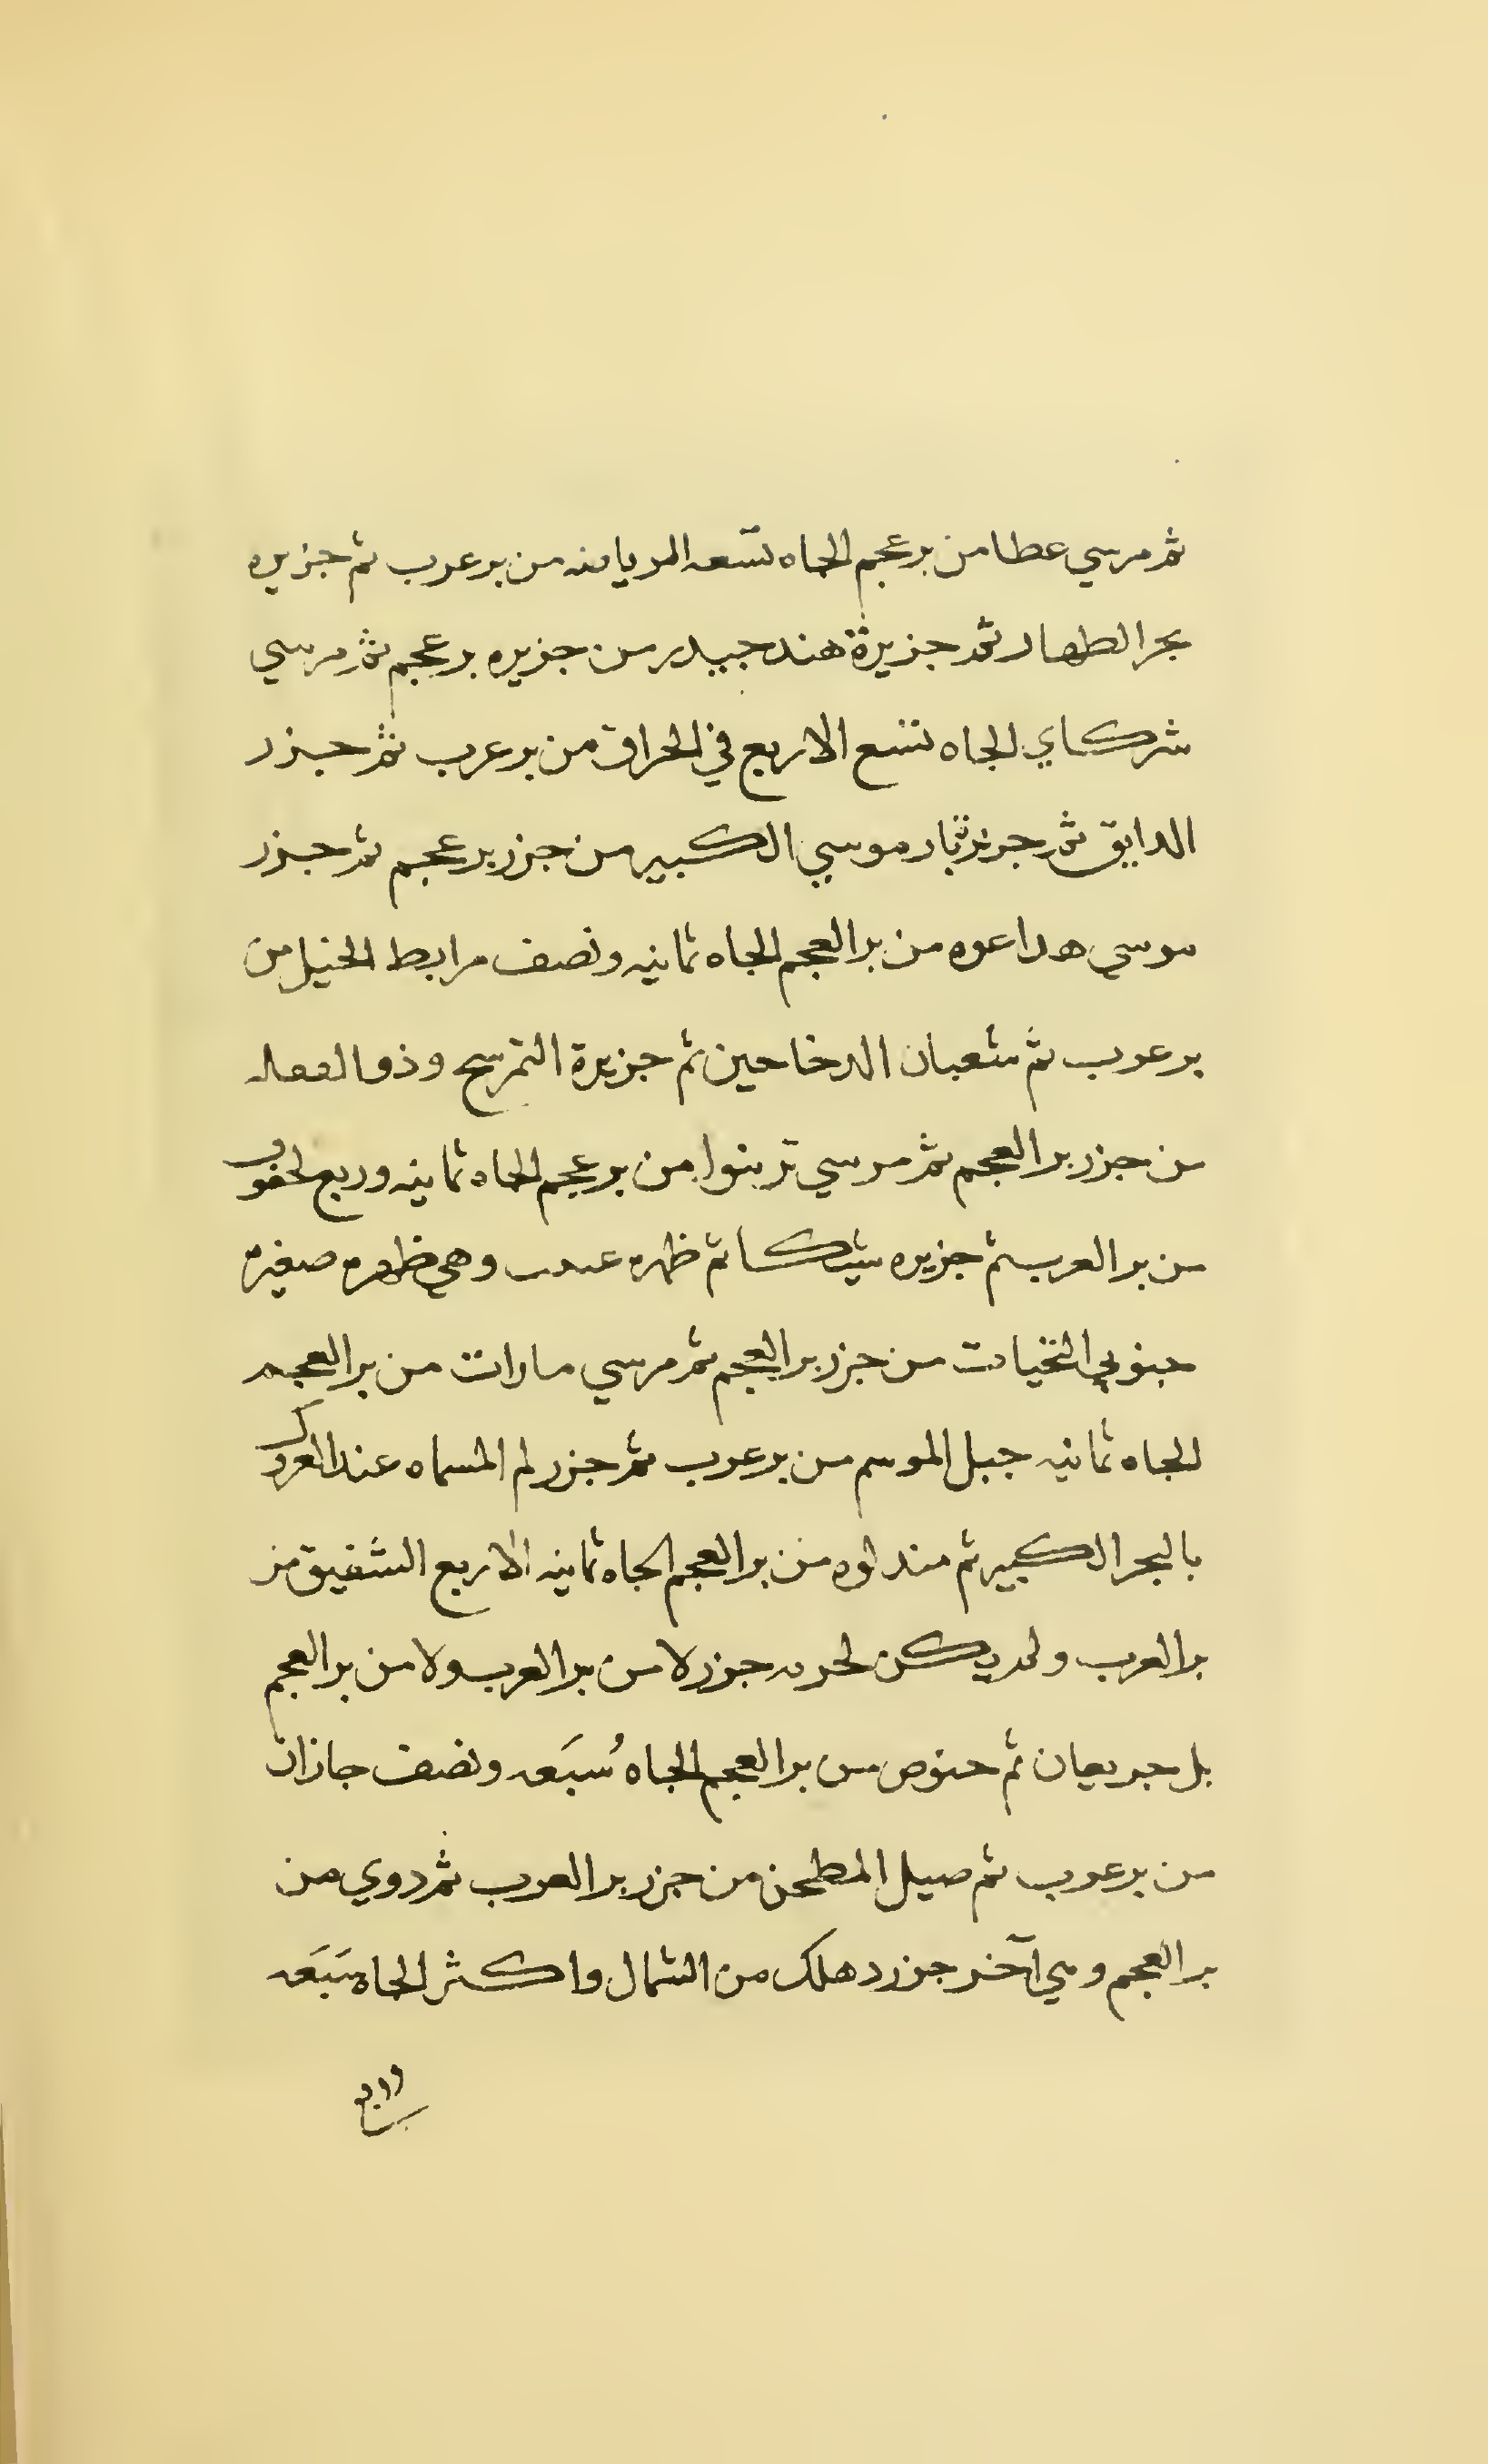 ثم مرسي عطا من بر عجم الجاه تسعه الا ربع من بر عرب ثم جزيره
بحر الطهار ثم جزيرة هند جيدر من جزيره بر عجم ثم مرسي
شركاي الجاه تسع الا ربع في الحراق من بر عرب ثم جزر
الدايق ثم جزر تبار موسي الكبير من جزر بر عجم ثم جزر
موسي هداعوه من بر العجم الجاه ثمانيه ونصف مرابط الخيل من
بر عرب ثم شعبان الدخاحين ثم جزيرة التمرسح وذو
من جزر بر العجم ثم مرسي تربنوا من بر عجم الجاه ثمانيه وربع
من بر العرب ثم جزيره شيكا ثم ظهره وهي ظهره صغيره
جنوبي التخيات من جزر بر العجم ثم مرسي مارات من بر العجم
الجاه ثمانيه جبل الموسم من بر عرب ثم جزر لم المسماه عند العرب
بالبحر الكبير ثم مندلوه من بر العجم الجاه ثمانيه الا ربع الشفيق من
بر العرب ولم يكن جزر لا من بر العرب ولا من بر العجم
بل ثم حنوص من بر العجم الجاه سُبَعه ونصف جازان
من بر عرب ثم صيل المطحن من جزر بر العرب ثم دوي من
بر العجم وهي آخر جزر دهلك من الشمال واكثر الجاه سَبَعه